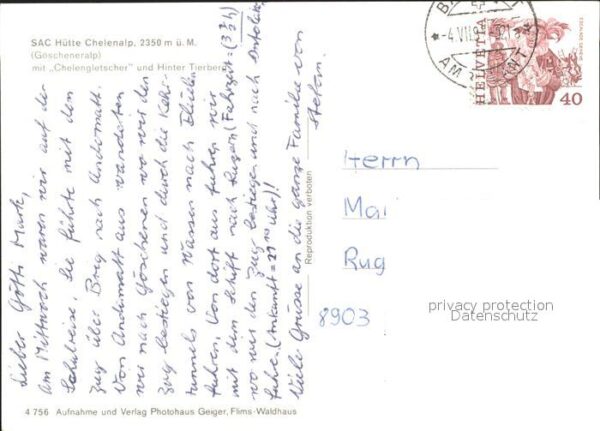 SAC Hütte Chelenalp, 2350 m ü. M.
(Göscheneralp)
mit „Chelengletscher" und Hinter Tierberg
Lieber Götti Mark,
Am Mittwoch waren wir auf der
Schulreise. Sie führte mit dem
Zug über Brig nach Andermatt.
Von Andermatt aus wanderten
wir nach Göschenen wo wir den
Zug bestiegen und durch die Kehr-
tunnels von Wassen nach Flüelen
fuhren. Von dort aus fuhren wir
mit dem Schiff nach Luzern (Fahrzeit = (3 1/2 h)
wo wir den Zug bestiegen und nach
fuhren. (Ankunft = 21 Uhr)!
Viele Grüsse an die ganze Familie von
Stefan.
Reproduktion verboten
4 756 Aufnahme und Verlag Photohaus Geiger, Flims-Waldhaus
HELVETIA
40
-4.VII.
Herrn
Mai
Rug
8903
privacy protection
Datenschutz